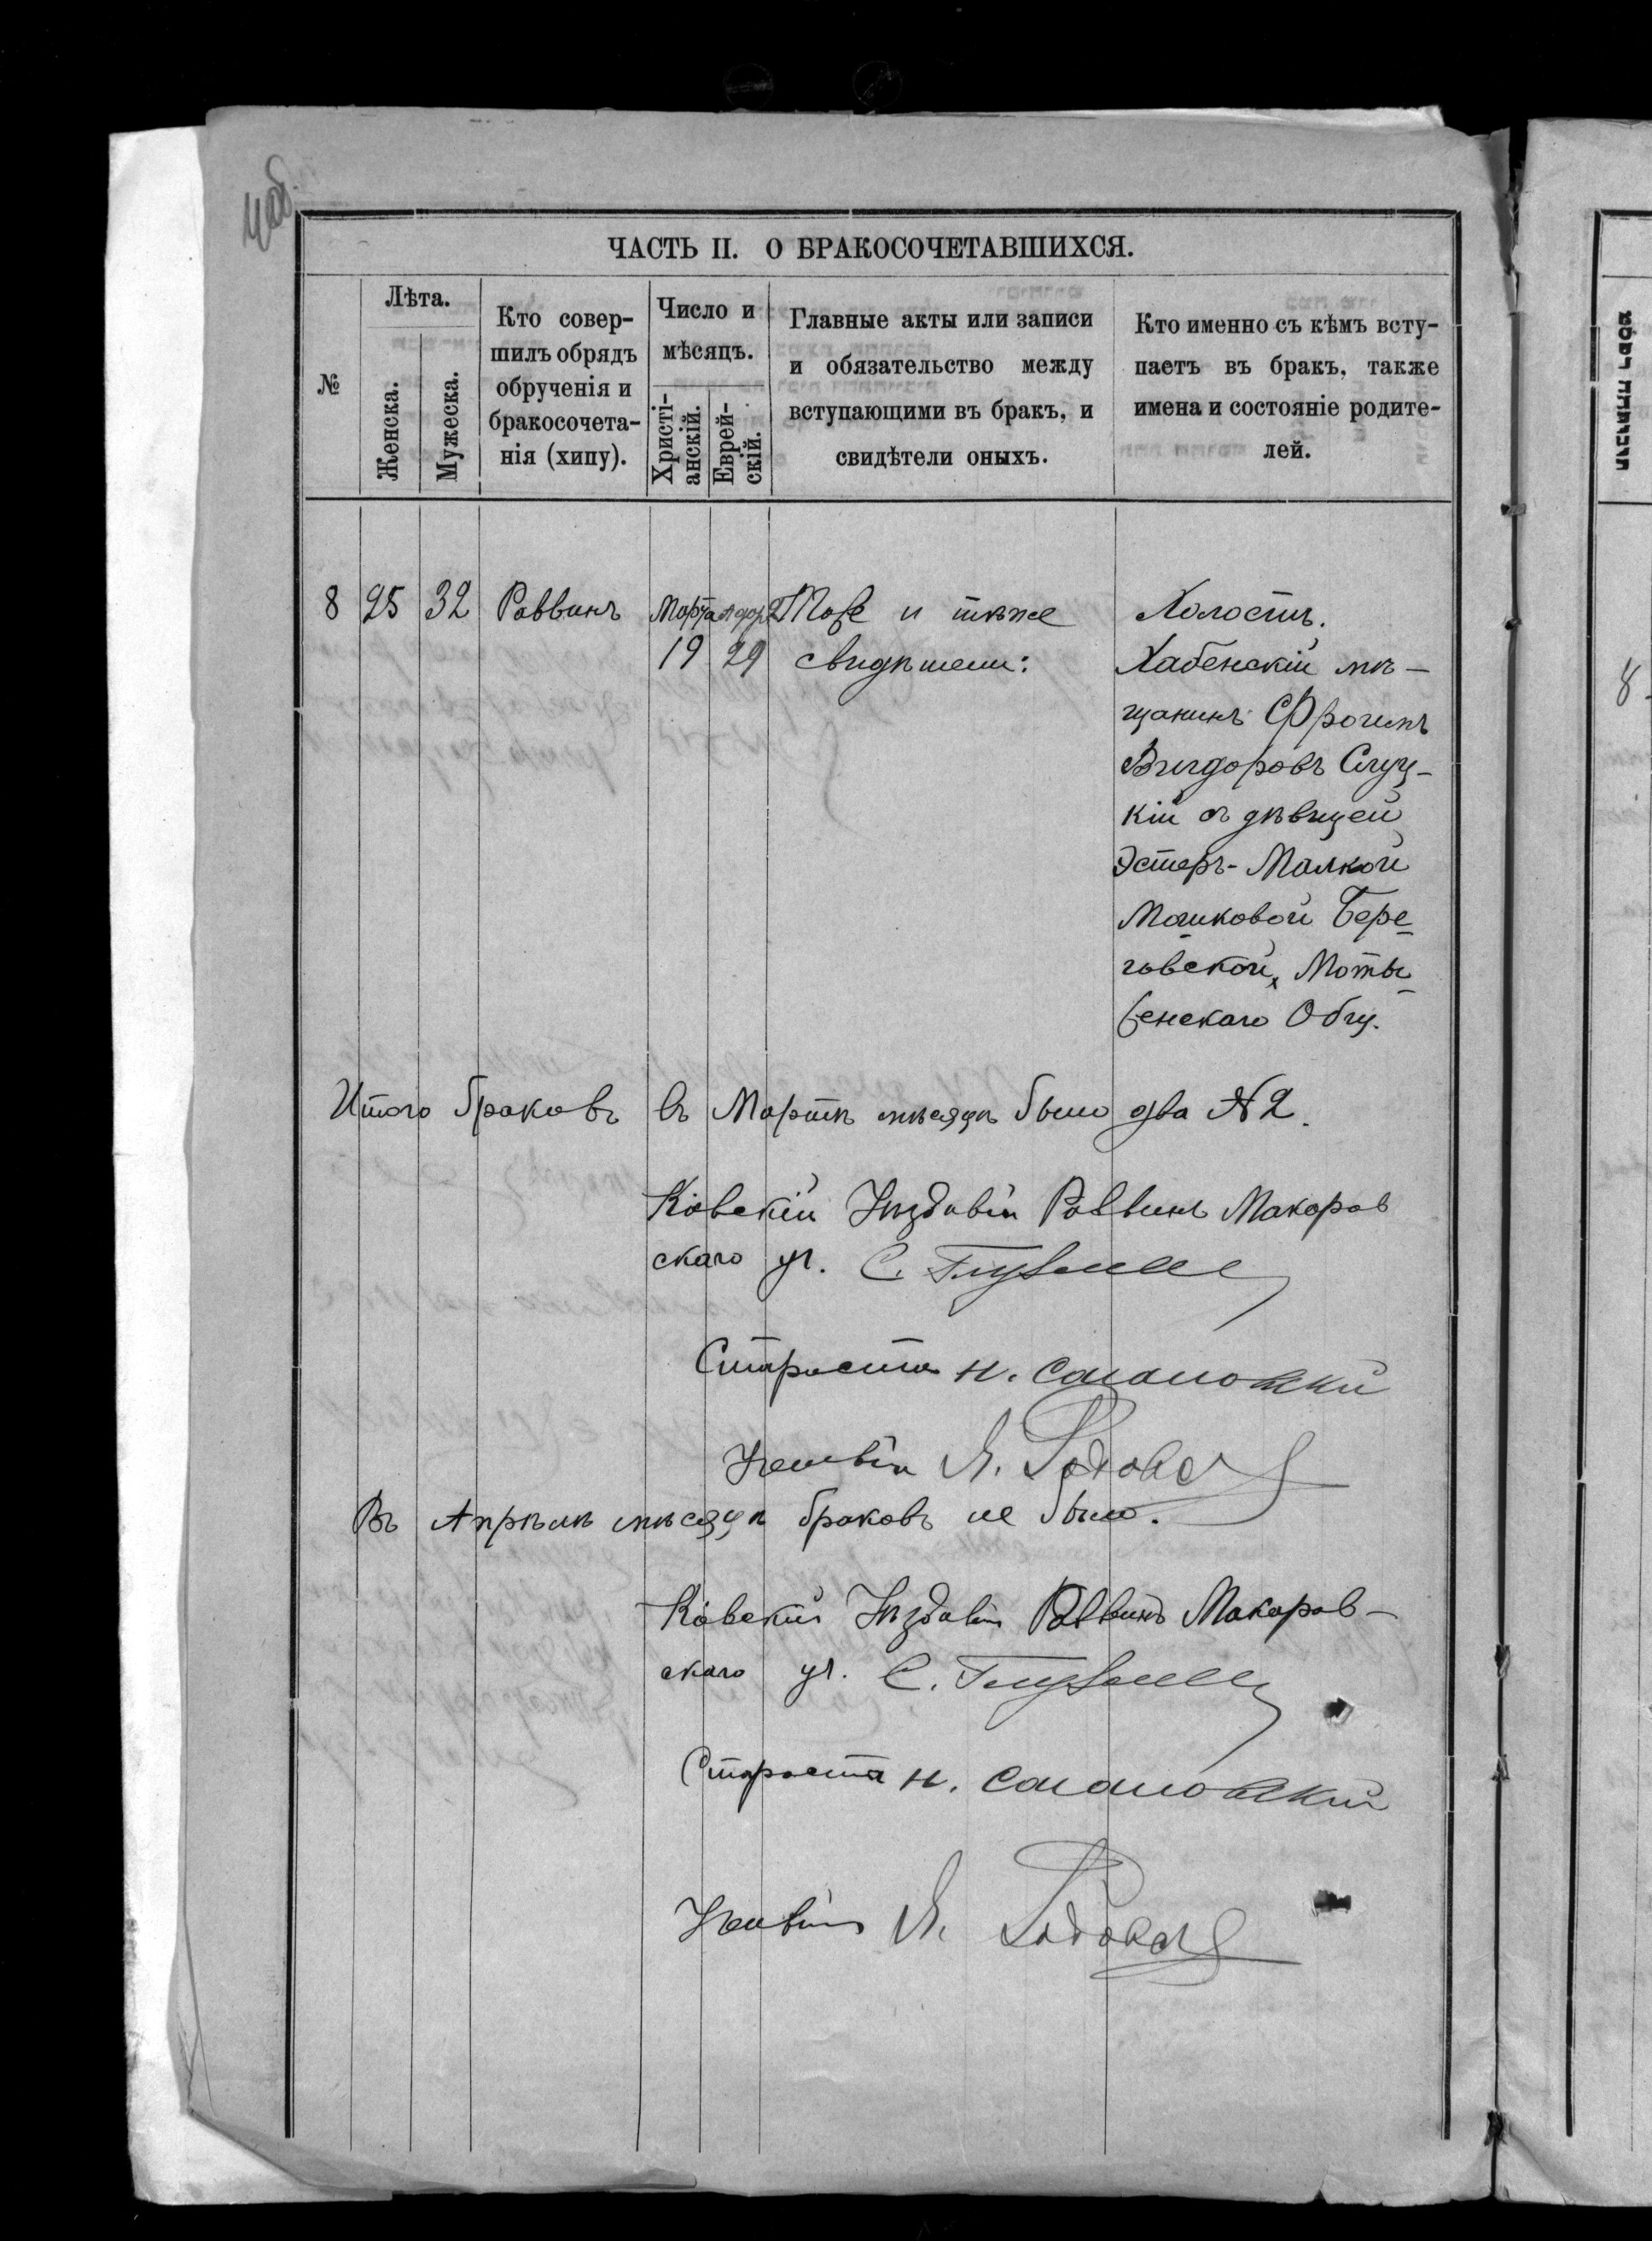 4об.
ЧАСТЬ II. О БРАКОСОЧЕТАВШИХСЯ.
№
Лѣта.
Женска.
Мужеска.
Кто совер-
шилъ обрядъ
обрученія и
бракосочета-
нія (хипу).
Число и
мѣсяцъ.
Христі-
анскій.
Еврей-
скій.
Главные акты или записи
и обязательство между
вступающими въ бракъ, и
свидѣтели оныхъ.
Кто именно съ кѣмъ всту-
паетъ въ бракъ, также
имена и состояніе родите-
лей.
8 25 32 Раввинъ Марта Адор 2 Тоже и тѣже
19 29 свидѣтели:
Холостъ.
Хабенскій мѣ-
щанинъ Фроимъ
Вигдоровъ Слуц-
кій съ дѣвицей
Эстеръ-Малкой
Мошковой Бере-
говской, Моты-
женскаго Общ.
Итого браковъ въ Мартѣ мѣсяцѣ было два №2.
Кіевскій Уѣздный Раввинъ Макаров
скаго уч. С.
Староста Н.
Казначей Я.
Въ Апрѣлѣ мѣсяцѣ браковъ не было.
Кіевскій Уѣздный Раввинъ Макаров-
скаго уч. С.
Староста Н.
Казначей Я.
8